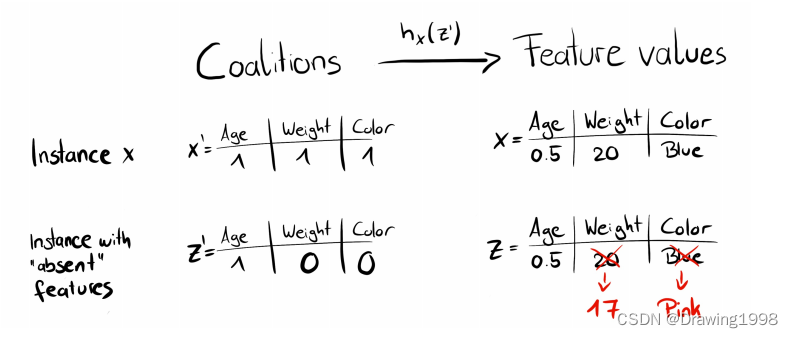 Coalitions hₓ(z') Feature values
Instance x
x' =
Age Weight Color
1 1 1
x =
Age Weight Color
0.5 20 Blue
Instance with
"absent"
features
z' =
Age Weight Color
1 0 0
z =
Age Weight Color
0.5 20 Blue
17 Pink
CSDN @Drawing1998